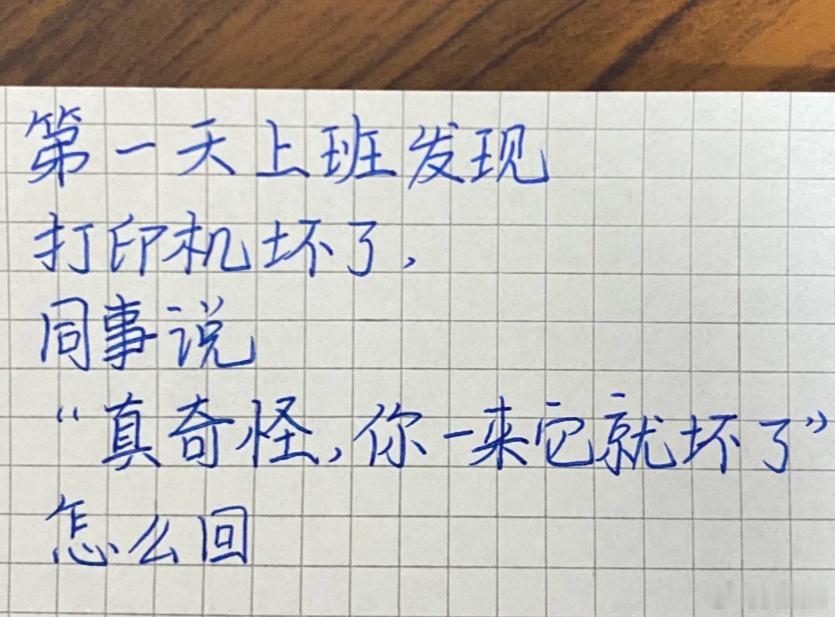 第一天上班发现
打印机坏了,
同事说
“真奇怪,你一来它就坏了”
怎么回